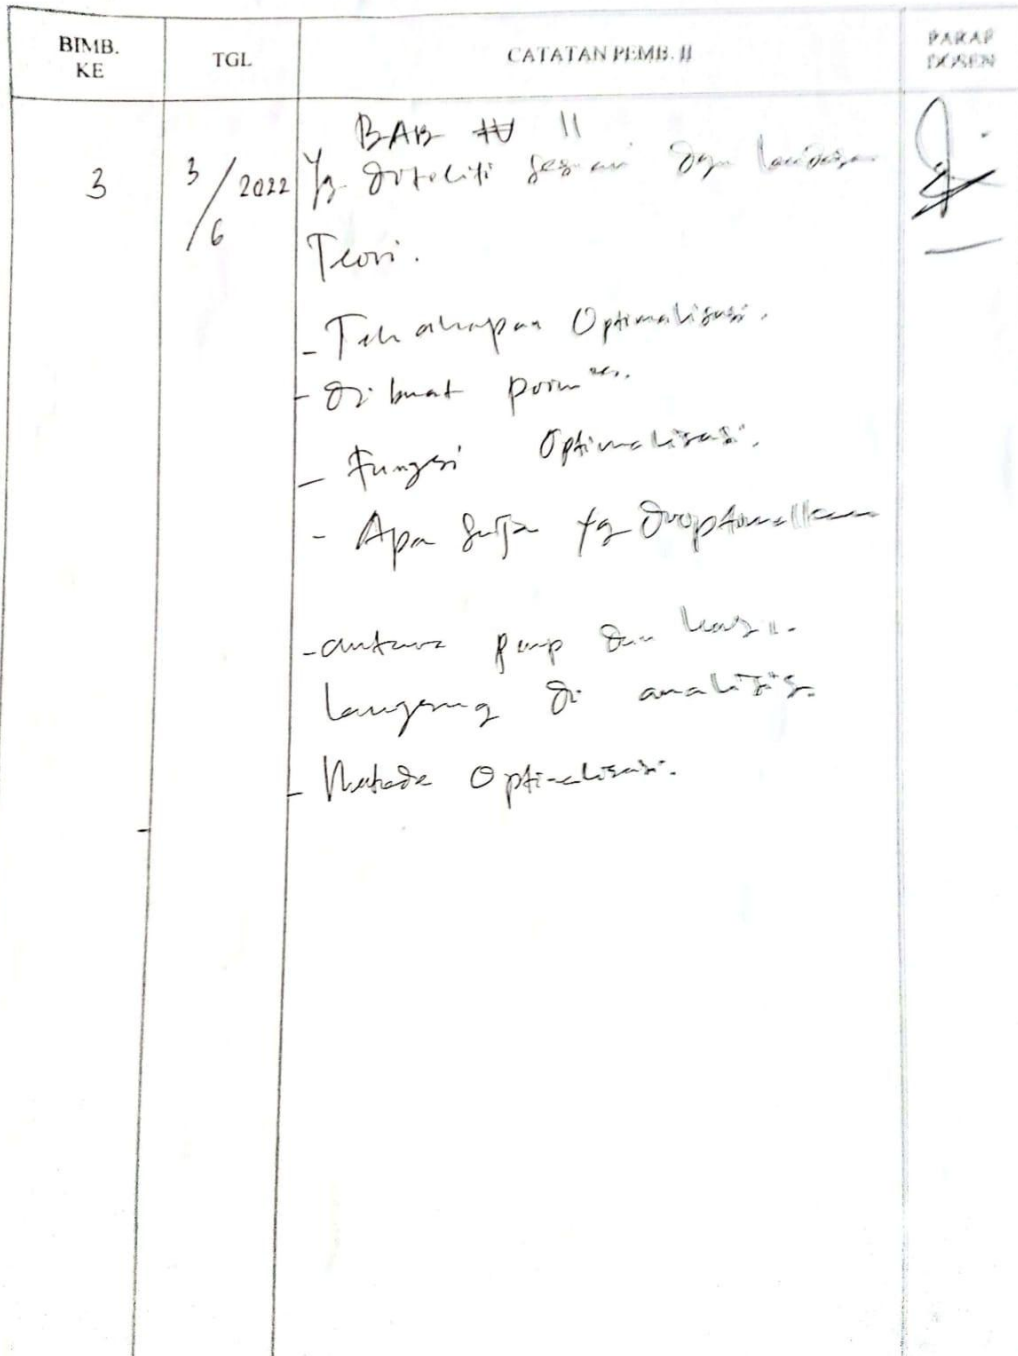 BIMB. KE
TGL
CATATAN PEMB. II
PARAF DOSEN
3
3/6 2022
BAB IV II
Yg diteliti sesuai dgn landasan
Teori.
- Tahapan Optimalisasi.
- di buat poin
- Fungsi Optimalisasi.
- Apa saja yg dioptimalkan
- antara dan
langsung di analisis.
- Metode Optimalisasi.